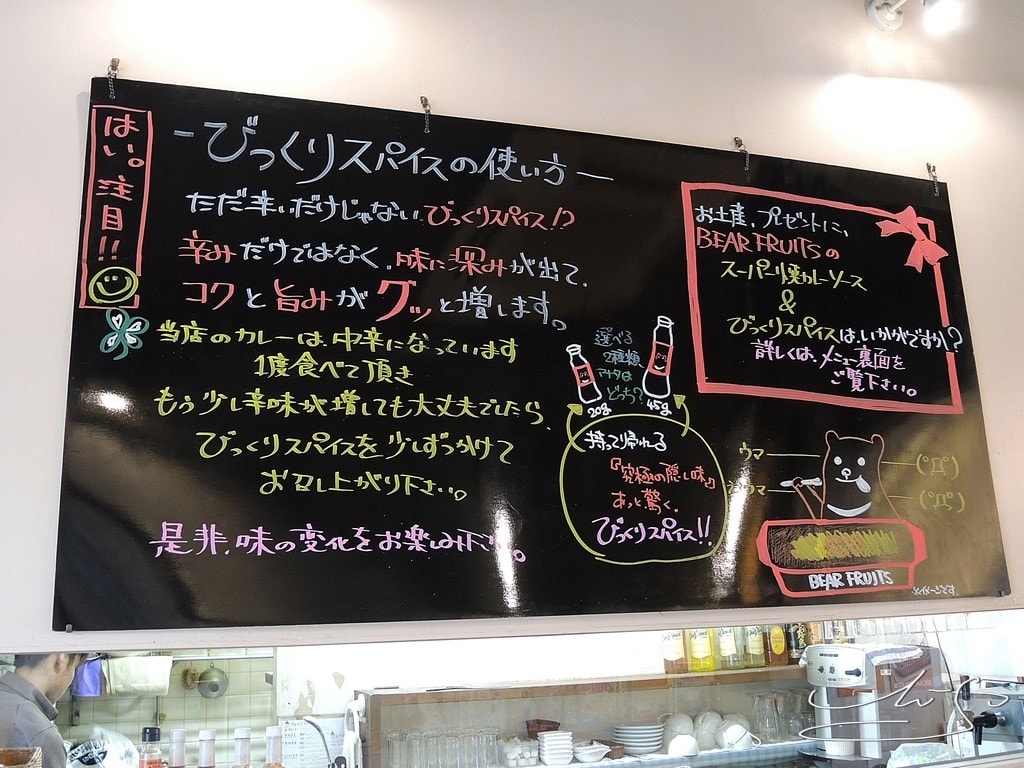 はい。注目!!
-びっくりスパイスの使い方-
ただ辛いだけじゃないびっくりスパイス!?
辛みだけではなく、味に深みが出て、
コクと旨みがグッと増します。
当店のカレーは、中辛になっています
1度食べて頂き
もう少し辛味が増しても大丈夫でしたら、
びっくりスパイスを少しずつかけて
お召し上がり下さい。
是非、味の変化をお楽しみ下さい。
選べる
2種類
アナタは
どっち?
20g
45g
持って帰れる
『究極の隠し味』
あっと驚く、
びっくりスパイス!!
お土産、プレゼントに、
BEAR FRUITSの
スーパー焼カレーソース
&
びっくりスパイスはいかがですか?
詳しくは、メニュー裏面を
ご覧下さい。
ウマ
ウマ
(°Д°)
(°Д°)
BEAR FRUITS
※イメージです